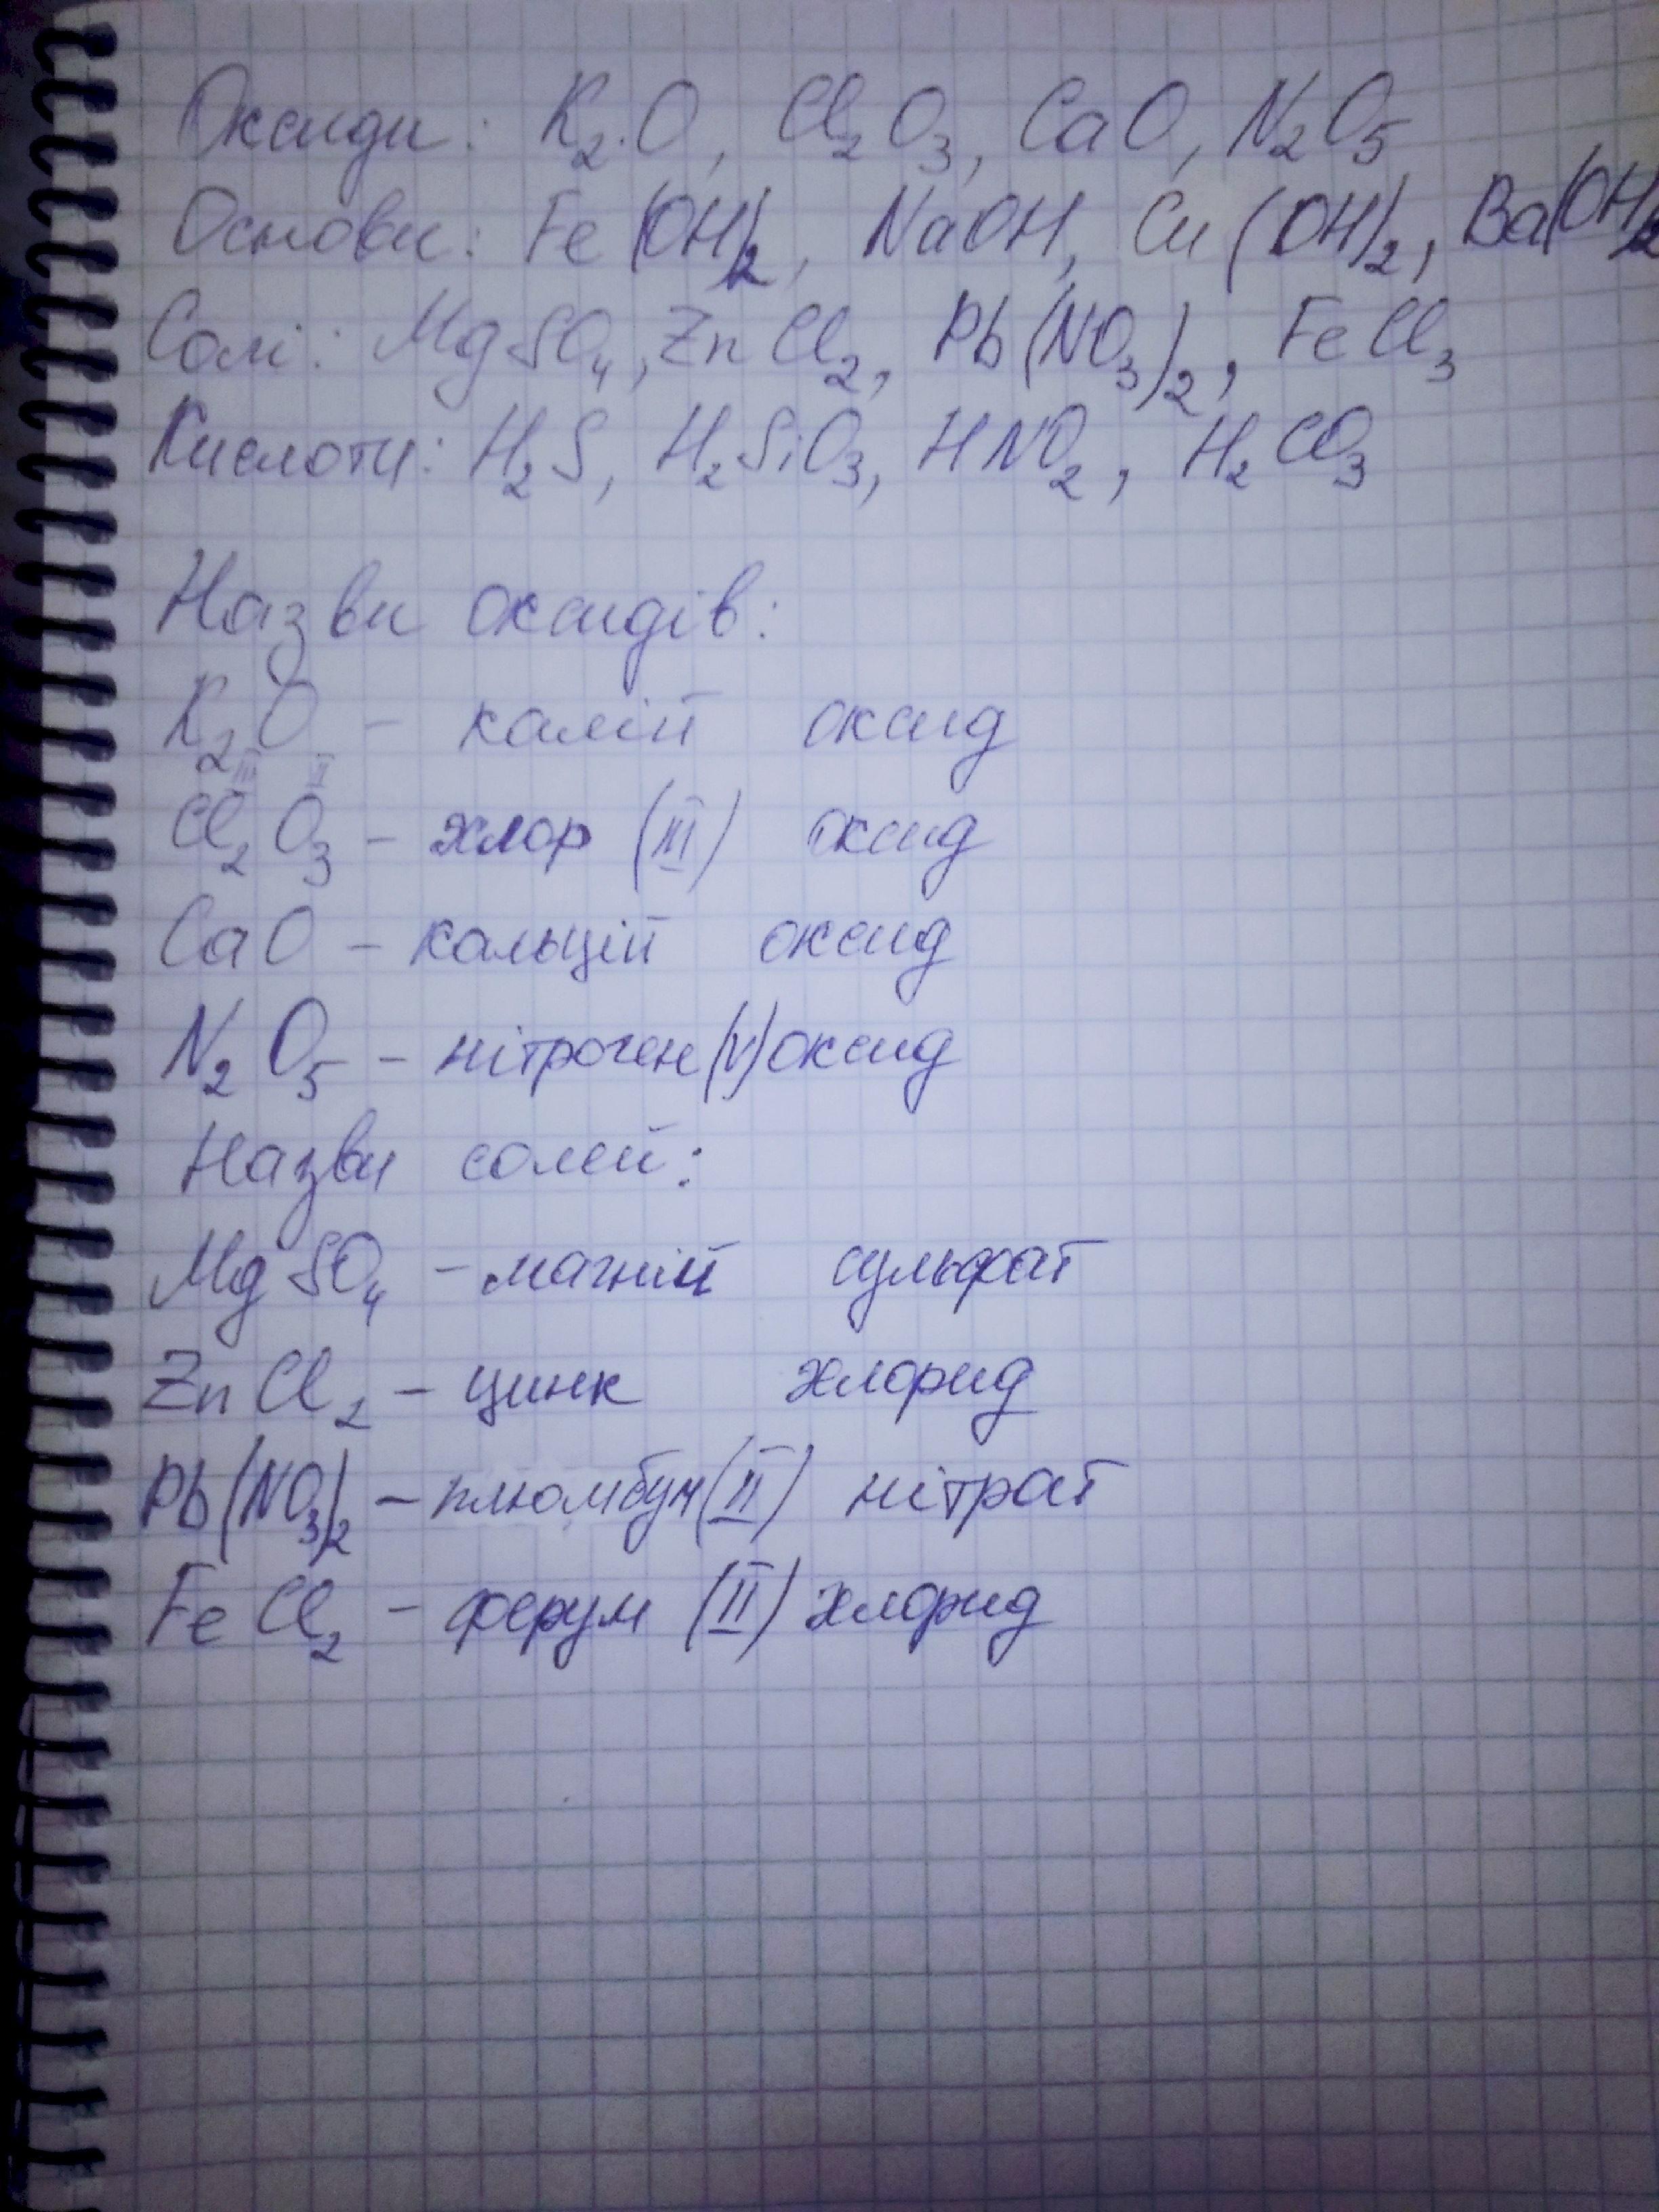 Оксиди: K₂O, Cl₂O₃, CaO, N₂O₅
Основи: Fe(OH)₂, NaOH, Cu(OH)₂, Ba(OH)₂
Солі: MgSO₄, ZnCl₂, Pb(NO₃)₂, FeCl₃
Кислоти: H₂S, H₂SiO₃, HNO₂, H₂CO₃
Назви оксидів:
K₂O – калій оксид
III II
Cl₂O₃ – хлор (III) оксид
CaO – кальцій оксид
N₂O₅ – нітроген (V) оксид
Назви солей:
MgSO₄ – магній сульфат
ZnCl₂ – цинк хлорид
Pb(NO₃)₂ – плюмбум (II) нітрат
FeCl₂ – ферум (II) хлорид